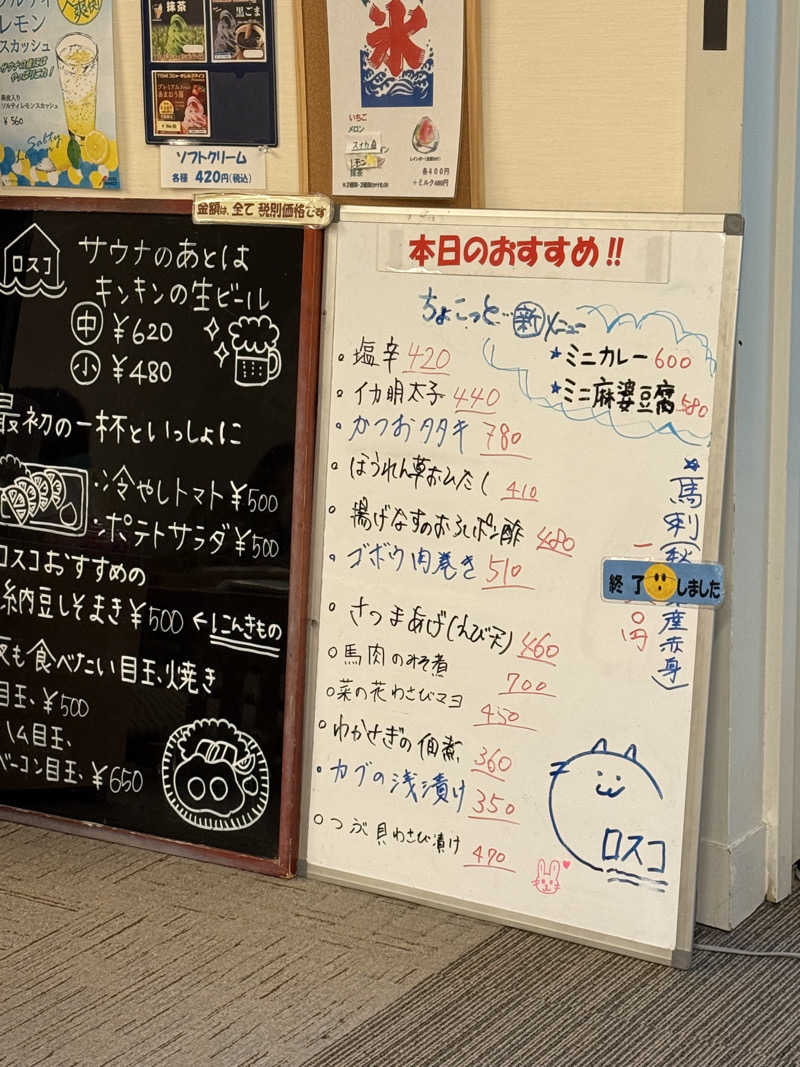 レモン
スカッシュ
果皮入り
ソルティレモンスカッシュ
¥560
Salty
抹茶
黒ごま
プレミアム
あまおう苺
ソフトクリーム
各種 420円(税込)
氷
いちご
メロン
抹茶
各400円
+ミルク480円
金額は、全て税別価格です
ロスコ
サウナのあとは
キンキンの生ビール
中 ¥620
小 ¥480
最初の一杯といっしょに
冷やしトマト ¥500
ポテトサラダ ¥500
ロスコおすすめの
納豆しそまき ¥500 ←1こんきもの
も食べたい目玉焼き
目玉、¥500
ハム目玉、
ベーコン目玉、¥650
本日のおすすめ!!
ちょこっと…新メニュー
★ミニカレー 600
★ミニ麻婆豆腐 580
塩辛 420
イカ明太子 440
かつおタタキ 780
ほうれん草おひたし 410
揚げなすのおろしポン酢 480
ゴボウ肉巻き 510
さつまあげ(えび天) 460
馬肉のみそ煮 700
菜の花わさびマヨ 450
わかさぎの佃煮 360
カブの浅漬け 350
つぶ貝わさび漬け 470
★馬刺(
産赤身)
0円
終了しました
ロスコ